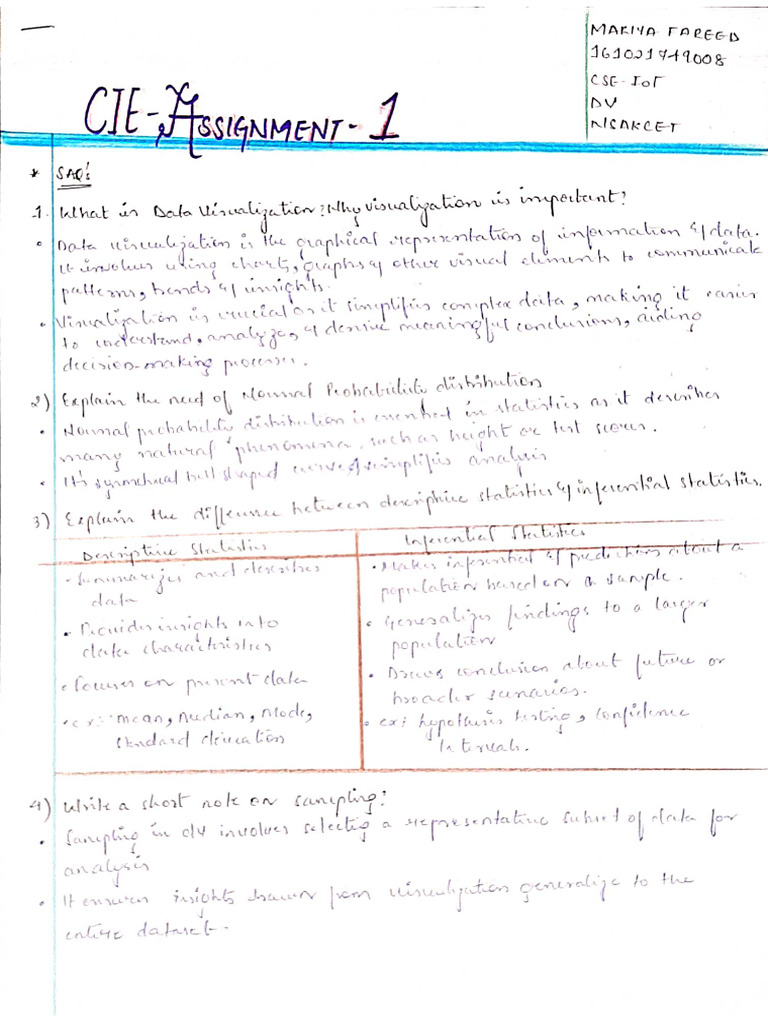 MARIYA FAREED
161021749008
CSE-IoT
DV
NISAKCET
CIE-ASSIGNMENT-1
* SAQ's
1. What is Data Visualization? Why visualization is important?
• Data visualization is the graphical representation of information & data.
It involves using charts, graphs & other visual elements to communicate
patterns, trends & insights.
• Visualization is crucial as it simplifies complex data, making it easier
to understand, analyze, & derive meaningful conclusions, aiding
decision-making processes.
2) Explain the need of Normal Probability distribution
• Normal probability distribution is essential in statistics as it describes
many natural phenomena, such as height or test scores.
• It's symmetrical bell shaped curve & simplifies analysis
3) Explain the difference between descriptive statistics & inferential statistics.
Descriptive Statistics
• Summarizes and describes
data
• Provides insights into
data characteristics
• Focuses on present data
• ex: mean, Median, Mode,
standard deviation
Inferential Statistics
• Makes inferential & predictions about a
population based on a sample.
• Generalizes findings to a larger
population
• Draws conclusion about future or
broader scenarios.
• ex: hypothesis testing, Confidence
Intervals.
4) Write a short note on sampling?
• Sampling in DV involves selecting a representative subset of data for
analysis
• It ensures insights drawn from visualization generalize to the
entire dataset.